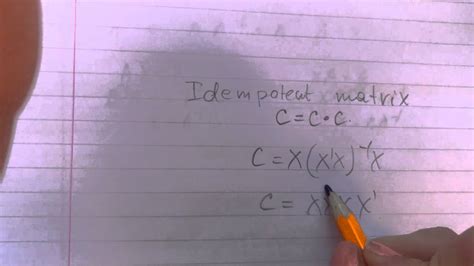 Idempotent matrix
C = C • C.
C = X(X'X)⁻¹X
C = X X'